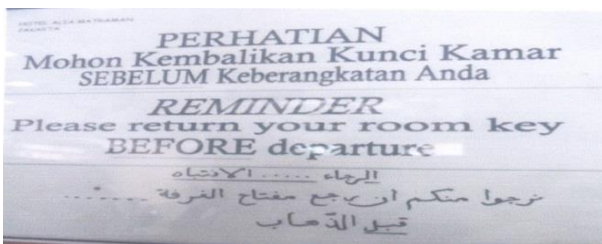 HOTEL ALIA MATRAMAN
JAKARTA
PERHATIAN
Mohon Kembalikan Kunci Kamar
SEBELUM Keberangkatan Anda
REMINDER
Please return your room key
BEFORE departure
الرجاء ..... الانتباه
نرجوا منكم ان يرجع مفتاح الغرفة .......
قبل الذهاب